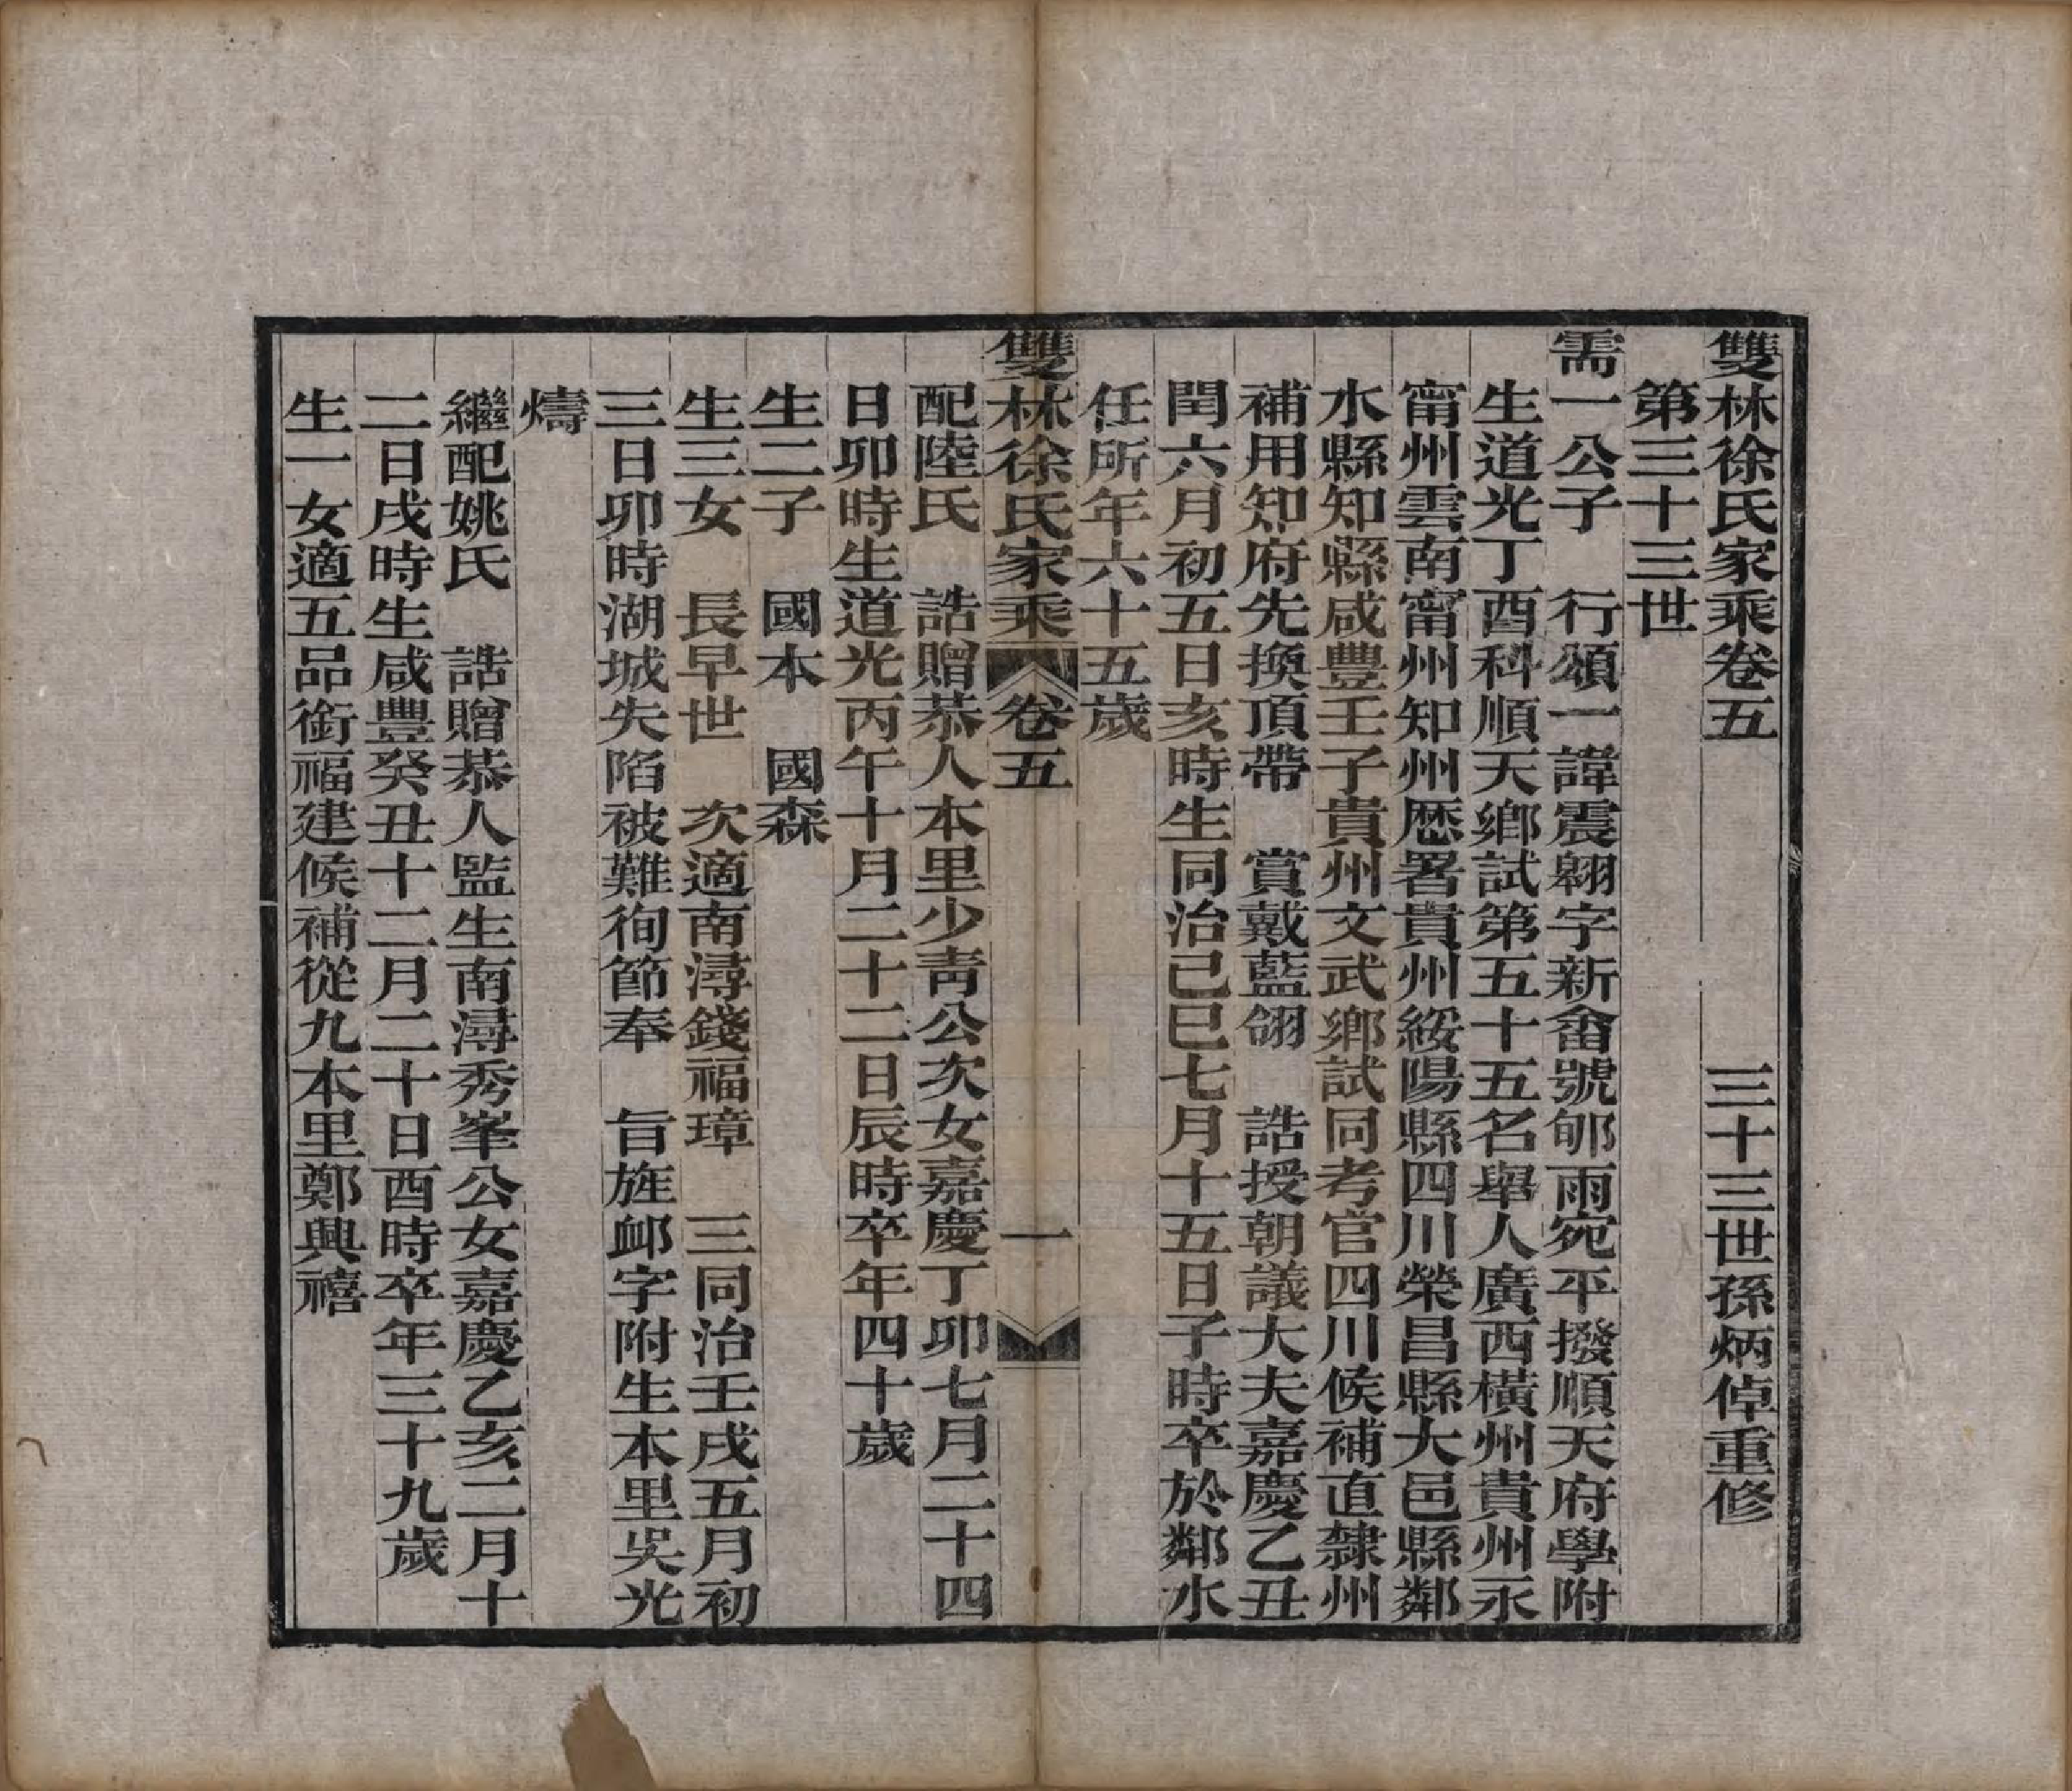 雙林徐氏家乘卷五　三十三世孫炳倬重修
第三十三世
需一公子　行頌一諱震翱字新畬號郇雨宛平撥順天府學附
生道光丁酉科順天鄉試第五十五名舉人廣西橫州貴州永
甯州雲南甯州知州歷署貴州綏陽縣四川榮昌縣大邑縣鄰
水縣知縣咸豐壬子貴州文武鄉試同考官四川候補直隸州
補用知府先換頂帶　賞戴藍翎　誥授朝議大夫嘉慶乙丑
閏六月初五日亥時生同治己巳七月十五日子時卒於鄰水
任所年六十五歲
雙林徐氏家乘　卷五　一
配陸氏　誥贈恭人本里少青公次女嘉慶丁卯七月二十四
日卯時生道光丙午十月二十二日辰時卒年四十歲
生二子　國本　國森
生三女　長早世　次適南潯錢福璋　三同治壬戌五月初
三日卯時湖城失陷被難徇節奉　旨旌卹字附生本里吳光
燽
繼配姚氏　誥贈恭人監生南潯秀峯公女嘉慶乙亥二月十
二日戌時生咸豐癸丑十二月二十日酉時卒年三十九歲
生一女適五品銜福建候補從九本里鄭興禧